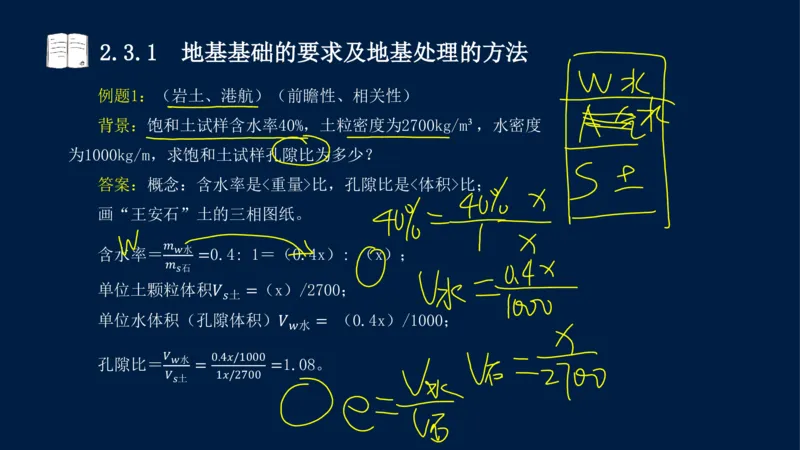 2.3.1 地基基础的要求及地基处理的方法
例题1:（岩土、港航）（前瞻性、相关性）
背景：饱和土试样含水率40%，土粒密度为2700kg/m³，水密度
为1000kg/m，求饱和土试样孔隙比为多少？
答案：概念：含水率是<重量>比，孔隙比是<体积>比；
画“王安石”土的三相图纸。
含水率=m_w水/m_s石=0.4：1=（0.4x）：（x）；
单位土颗粒体积V_s土 =（x）/2700；
单位水体积（孔隙体积）V_w水 = （0.4x）/1000；
孔隙比=V_w水/V_s土=0.4x/1000/1x/2700=1.08。
W 水
A 气 水
S 土
40% = 40% x / 1 x
W
V水 = 0.4x / 1000
V石 = x / 2700
e = V水 / V石